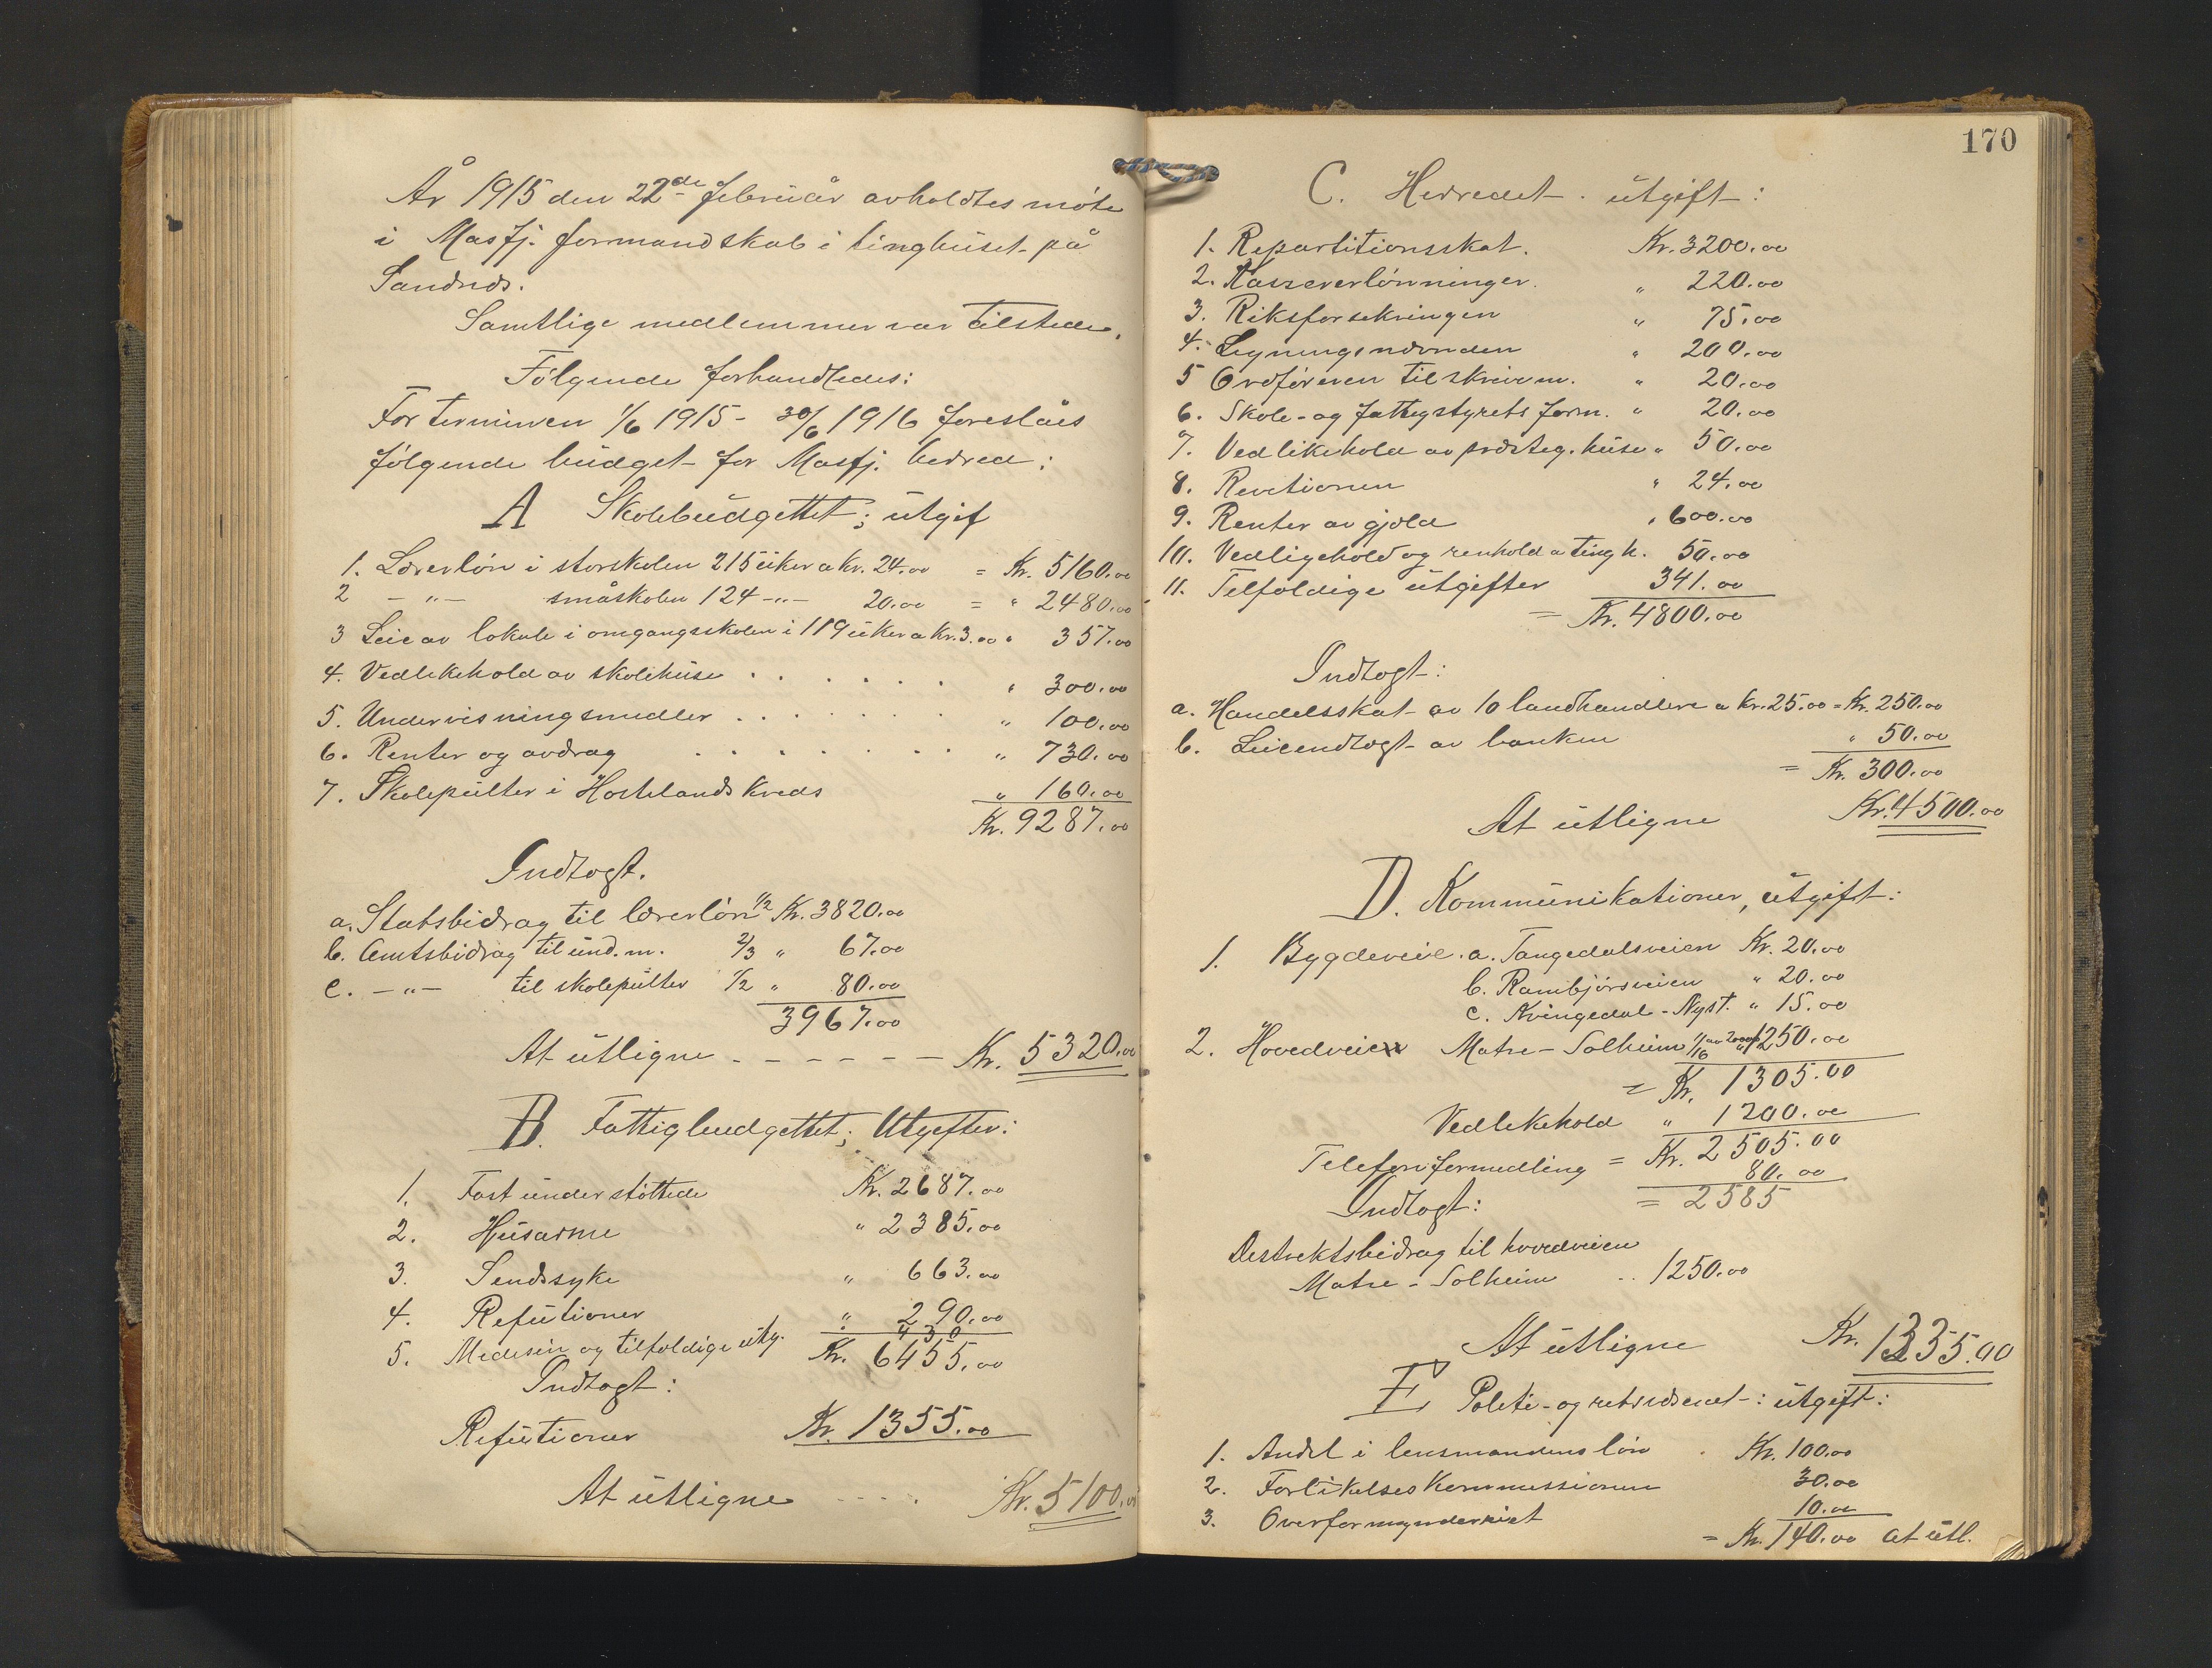 År 1915 den 22de februar avholdtes möte
i Masfj. formandskab i tinghuset på
Sandnds.
Samtlige medlemmer var tilstede.
Følgende forhandledes:
For terminen 1/6 1915 - 30/6 1916 foreslåes
følgende budget for Masfj. herred:
A Skolebudgettet; utgif
1. Lærerløn i storskolen 215 uker a kr. 24.00 = Kr. 5160.00
2 - " - småskolen 124 - " - 20.00 = " 2480.00
3 Leie av lokale i omgangsskolen i 119 uker a kr. 3.00 " 357.00
4. Vedlikehold av skolehuse . . . . . . " 300.00
5. Undervisningsmedler . . . . . . . " 100.00
6. Renter og avdrag . . . . . . . . " 730.00
7. Skolepulter i Hostelands kreds " 160.00
Kr. 9287.00
Indtægt.
a. Statsbidrag til lærerløn 1/2 Kr. 3820.00
b. Amtsbidrag til und.m. 2/3 " 67.00
c. - " - til skolepulter 1/2 " 80.00
3967.00
At utligne - - - - - - Kr. 5320.00
B. Fattigbudgettet; Utgifter:
1. Fast understøttede Kr. 2687.00
2. Husarme " 2385.00
3. Sendssyke " 663.00
4. Refutioner " 290.00
5. Medisin og tilfældige utg. " 430
Kr. 6455.00
Indtægt:
Refutioner Kr. 1355.00
At utligne - - - . Kr. 5100.00
170
C. Herredet. utgift:
1. Repartitionsskat. Kr. 3200.00
2. Kassererlønninger. " 220.00
3. Riksforsikringen " 75.00
4. Ligningsnævnden " 200.00
5 Ordføreren til skrivm. " 20.00
6. Skole- og fattigstyrets form. " 20.00
7. Vedlikehold av præsteg. huse " 50.00
8. Revitionen " 24.00
9. Renter av gjæld " 600.00
10. Vedligehold og renhold a tingh. 50.00
11. Tilfældige utgifter 341.00
= Kr. 4800.00
Indtægt:
a. Handelsskat av 10 landhandlere a kr. 25.00 = Kr. 250.00
b. Leieindtægt av banken " 50.00
= Kr. 300.00
At utligne Kr. 4500.00
D. Kommunikationer, utgift:
1. Bygdeveie. a. Tangedalsveien Kr. 20.00
b. Rambjörsveien " 20.00
c. Kvingedal - Nyst. " 15.00
2. Hovedveie Matre - Solheim 1/16 av 20000 " 1250.00
= Kr. 1305.00
Vedlikehold " 1200.00
= Kr. 2505.00
Telefonformedling 80.00
= 2585
Indtægt:
Distriktsbidrag til hovedveien
Matre - Solheim .. 1250.00
At utligne Kr. 1335.00
E Politi- og retsvæsenet: utgift:
1. Andel i lensmandens løn . Kr. 100.00
2. Forlikelseskommissionen 30.00
3. Overformynderiet 10.00
= Kr. 140.00 at utl.